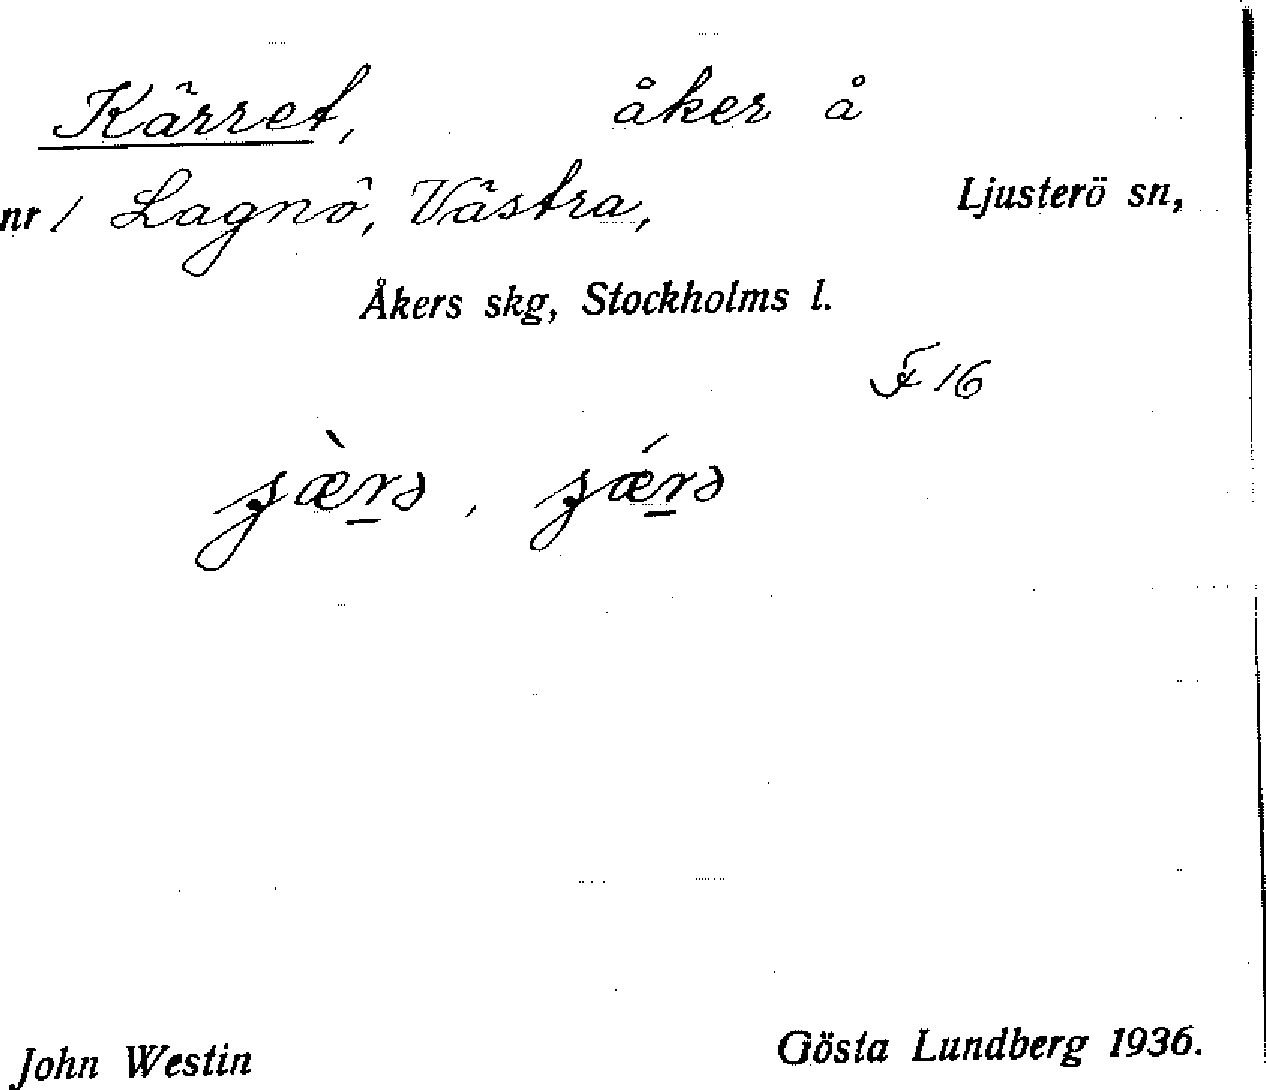 Kärret, åker å
nr 1 Lagnö, Västra, Ljusterö sn,
Åkers skg, Stockholms l.
F 16
John Westin Gösta Lundberg 1936.